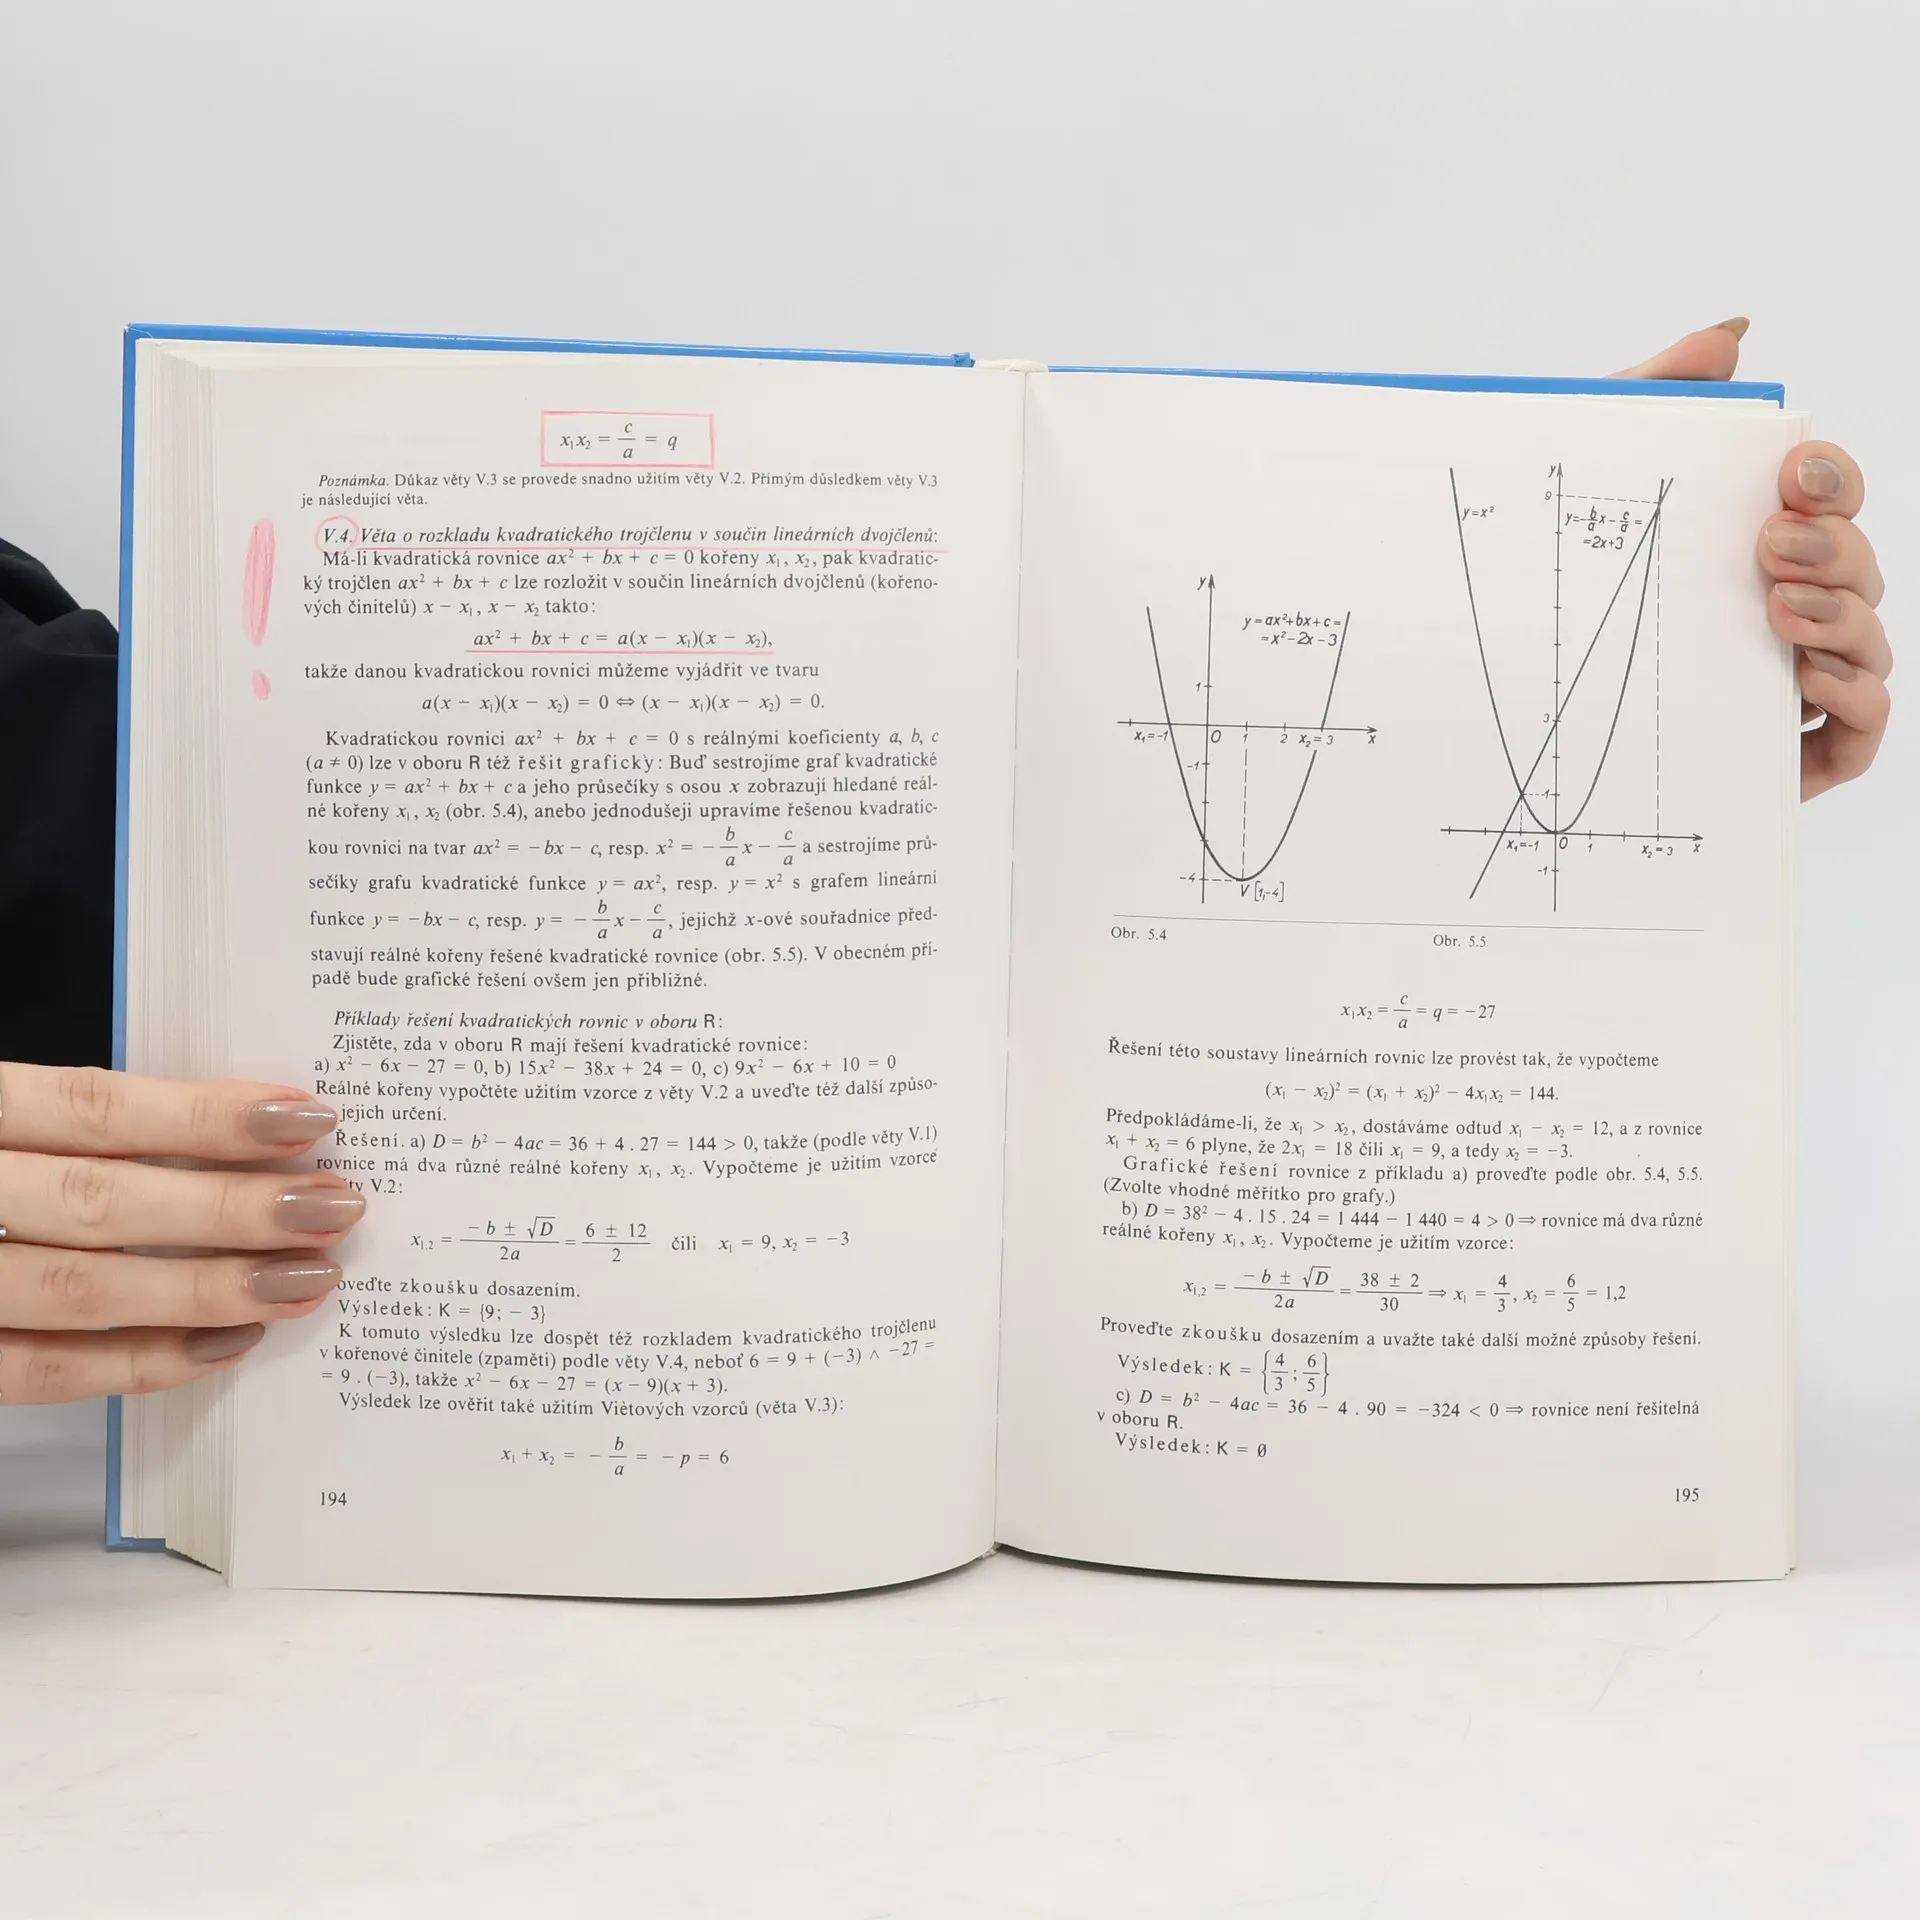 x₁x₂ = c/a = q
Poznámka. Důkaz věty V.3 se provede snadno užitím věty V.2. Přímým důsledkem věty V.3
je následující věta.
V.4. Věta o rozkladu kvadratického trojčlenu v součin lineárních dvojčlenů:
Má-li kvadratická rovnice ax² + bx + c = 0 kořeny x₁, x₂, pak kvadratic-
ký trojčlen ax² + bx + c lze rozložit v součin lineárních dvojčlenů (kořeno-
vých činitelů) x − x₁, x − x₂ takto:
ax² + bx + c = a(x − x₁)(x − x₂),
takže danou kvadratickou rovnici můžeme vyjádřit ve tvaru
a(x − x₁)(x − x₂) = 0 ⇔ (x − x₁)(x − x₂) = 0.
Kvadratickou rovnici ax² + bx + c = 0 s reálnými koeficienty a, b, c
(a ≠ 0) lze v oboru R též řešit graficky: Buď sestrojíme graf kvadratické
funkce y = ax² + bx + c a jeho průsečíky s osou x zobrazují hledané reál-
né kořeny x₁, x₂ (obr. 5.4), anebo jednodušeji upravíme řešenou kvadratic-
kou rovnici na tvar ax² = −bx − c, resp. x² = −b/a x − c/a a sestrojíme prů-
sečíky grafu kvadratické funkce y = ax², resp. y = x² s grafem lineární
funkce y = −bx − c, resp. y = −b/a x − c/a, jejichž x-ové souřadnice před-
stavují reálné kořeny řešené kvadratické rovnice (obr. 5.5). V obecném pří-
padě bude grafické řešení ovšem jen přibližné.
Příklady řešení kvadratických rovnic v oboru R:
Zjistěte, zda v oboru R mají řešení kvadratické rovnice:
a) x² − 6x − 27 = 0, b) 15x² − 38x + 24 = 0, c) 9x² − 6x + 10 = 0
Reálné kořeny vypočtěte užitím vzorce z věty V.2 a uveďte též další způso-
jejich určení.
Řešení. a) D = b² − 4ac = 36 + 4 . 27 = 144 > 0, takže (podle věty V.1)
rovnice má dva různé reálné kořeny x₁, x₂. Vypočteme je užitím vzorce
ty V.2:
x₁,₂ = (−b ± √D)/2a = (6 ± 12)/2 čili x₁ = 9, x₂ = −3
oveďte zkoušku dosazením.
Výsledek: K = {9; − 3}
K tomuto výsledku lze dospět též rozkladem kvadratického trojčlenu
v kořenové činitele (zpaměti) podle věty V.4, neboť 6 = 9 + (−3) ∧ −27 =
= 9 . (−3), takže x² − 6x − 27 = (x − 9)(x + 3).
Výsledek lze ověřit také užitím Viètových vzorců (věta V.3):
x₁ + x₂ = − b/a = − p = 6
194
y
y=ax²+bx+c=
=x²−2x−3
1
x₁=−1
0
1
2
x₂=3
x
−1
−4
V [1,−4]
Obr. 5.4
y
9
y=x²
y=−b/a x−c/a=
=2x+3
3
1
x₁=−1
0
1
x₂=3
x
−1
Obr. 5.5
x₁x₂ = c/a = q = −27
Řešení této soustavy lineárních rovnic lze provést tak, že vypočteme
(x₁ − x₂)² = (x₁ + x₂)² − 4x₁x₂ = 144.
Předpokládáme-li, že x₁ > x₂, dostáváme odtud x₁ − x₂ = 12, a z rovnice
x₁ + x₂ = 6 plyne, že 2x₁ = 18 čili x₁ = 9, a tedy x₂ = −3.
Grafické řešení rovnice z příkladu a) proveďte podle obr. 5.4, 5.5.
(Zvolte vhodné měřítko pro grafy.)
b) D = 38² − 4 . 15 . 24 = 1 444 − 1 440 = 4 > 0 ⇒ rovnice má dva různé
reálné kořeny x₁, x₂. Vypočteme je užitím vzorce:
x₁,₂ = (−b ± √D)/2a = (38 ± 2)/30 ⇒ x₁ = 4/3, x₂ = 6/5 = 1,2
Proveďte zkoušku dosazením a uvažte také další možné způsoby řešení.
Výsledek: K = {4/3; 6/5}
c) D = b² − 4ac = 36 − 4 . 90 = −324 < 0 ⇒ rovnice není řešitelná
v oboru R.
Výsledek: K = ∅
195